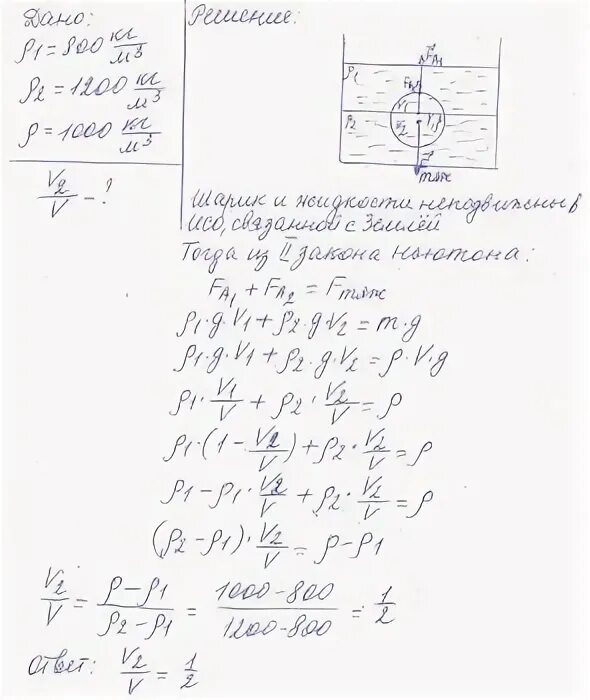 Дано:
ρ1 = 800 кг/м³
ρ2 = 1200 кг/м³
ρ = 1000 кг/м³
V2/V - ?
Решение:
F A1
F A2
ρ1
V1
ρ2
V2
mтяж
Шарик и жидкости неподвижны в
ИСО, связанной с Землёй
Тогда из II закона Ньютона:
F A1 + F A2 = F тяж
ρ1·g·V1 + ρ2·g·V2 = m·g
ρ1·g·V1 + ρ2·g·V2 = ρ·V·g
ρ1·V1/V + ρ2·V2/V = ρ
ρ1·(1 - V2/V) + ρ2·V2/V = ρ
ρ1 - ρ1·V2/V + ρ2·V2/V = ρ
(ρ2 - ρ1)·V2/V = ρ - ρ1
V2/V = (ρ - ρ1)/(ρ2 - ρ1) = (1000 - 800)/(1200 - 800) = 1/2
Ответ: V2/V = 1/2